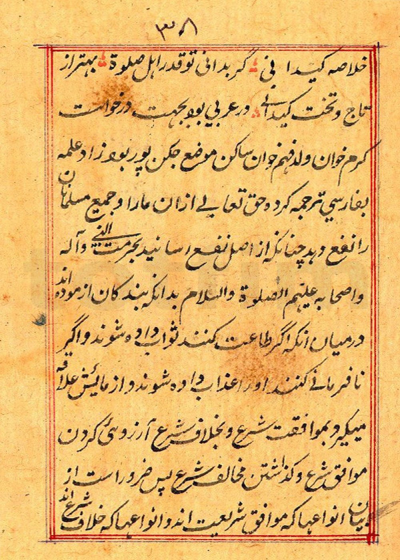 ۳۸
خلاصه کیدانی گر بدانی تو قدر اهل صلوة بهتر از
تاج و تخت کیدانی در عربی بود بجهت درخواست
کرم خوان ولد فهیم خوان ساکن موضع جکن پور بود زاد علمه
بفارسی ترجمه کرده حق تعالی از ان ما را و جمیع مسلمانان
را نفع دهد چنانکه از اصل نفع رسانید بحرمت النبی و آله
و اصحابه علیهم الصلوة والسلام بدانکه بندکان ازموده اند
درمیان انکه اکر طاعت کنند ثواب داده شوند و اکر
نافرمانی کنند اور اعذاب داده شوند و ازمائش علاقه
میکیرد بموافقت شرع و بخلاف شرع آرزوئی کردن
موافق شرع و کذاشتن مخالف شرع پس ضرور است از
بیان انواعها که موافق شریعت اند و انواعها که خلاف شرع اند